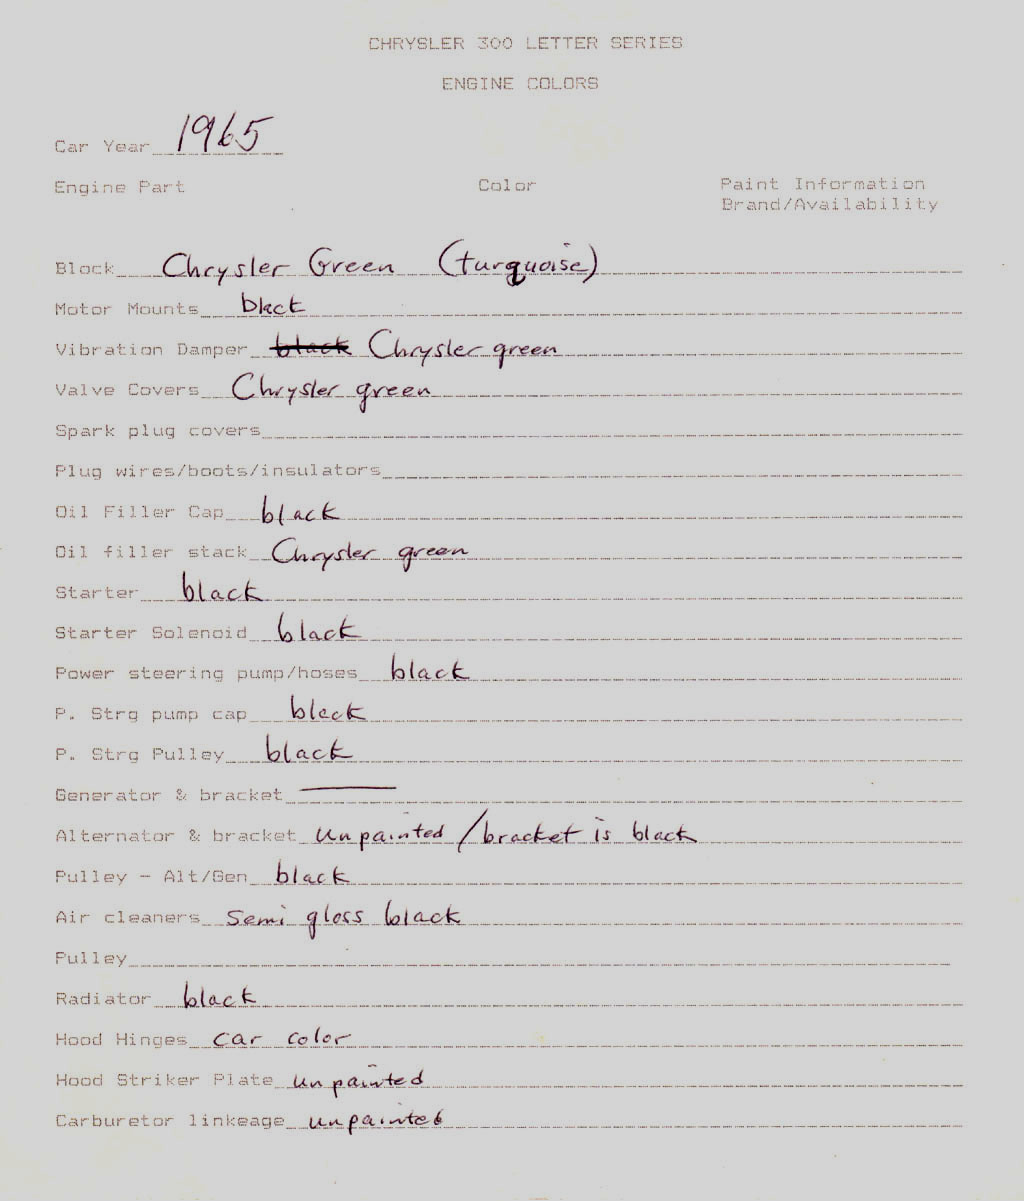 CHRYSLER 300 LETTER SERIES
ENGINE COLORS
Car Year 1965
Engine Part Color Paint Information
Brand/Availability
Block Chrysler Green (turquoise)
Motor Mounts black
Vibration Damper black Chrysler green
Valve Covers Chrysler green
Spark plug covers
Plug wires/boots/insulators
Oil Filler Cap black
Oil filler stack Chrysler green
Starter black
Starter Solenoid black
Power steering pump/hoses black
P. Strg pump cap black
P. Strg Pulley black
Generator & bracket —
Alternator & bracket unpainted / bracket is black
Pulley - Alt/Gen black
Air cleaners semi gloss black
Pulley
Radiator black
Hood Hinges car color
Hood Striker Plate unpainted
Carburetor linkeage unpainted